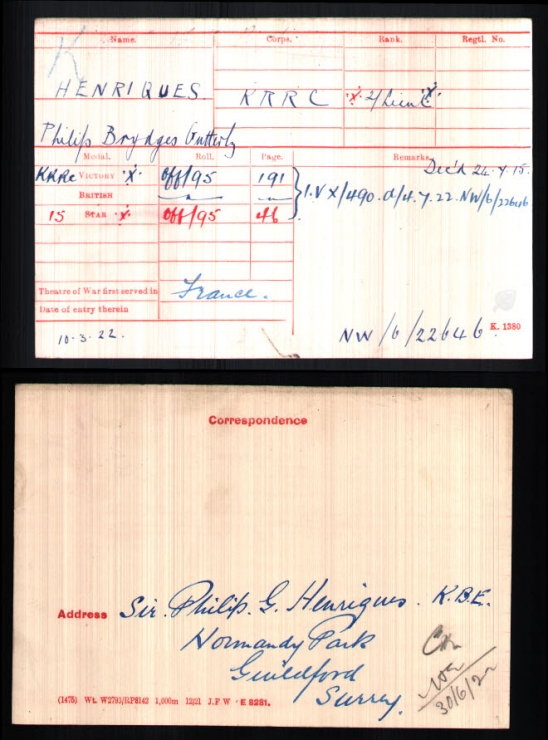 Name. Corps. Rank. Regtl. No.
K
HENRIQUES. KRRC X 2/Lieut X
Philip Brydges Gutterly
Medal. Roll. Page. Remarks.
Dec'd 24.7.15.
KRRC VICTORY X Off/95 191
BRITISH " "
I.V X/490. d/4.7.22. NW/6/22646
15 STAR X Off/95 46
Theatre of War first served in France.
Date of entry therein
10.3.22. NW/6/22646. K. 1380
Correspondence
Address Sir. Philip. G. Henriques. K.B.E.
Normandy Park
Guildford
Surrey.
30/6/22
(1475) Wt. W2793/RP8142 1,000m 12/21 J.F.W E 9281.